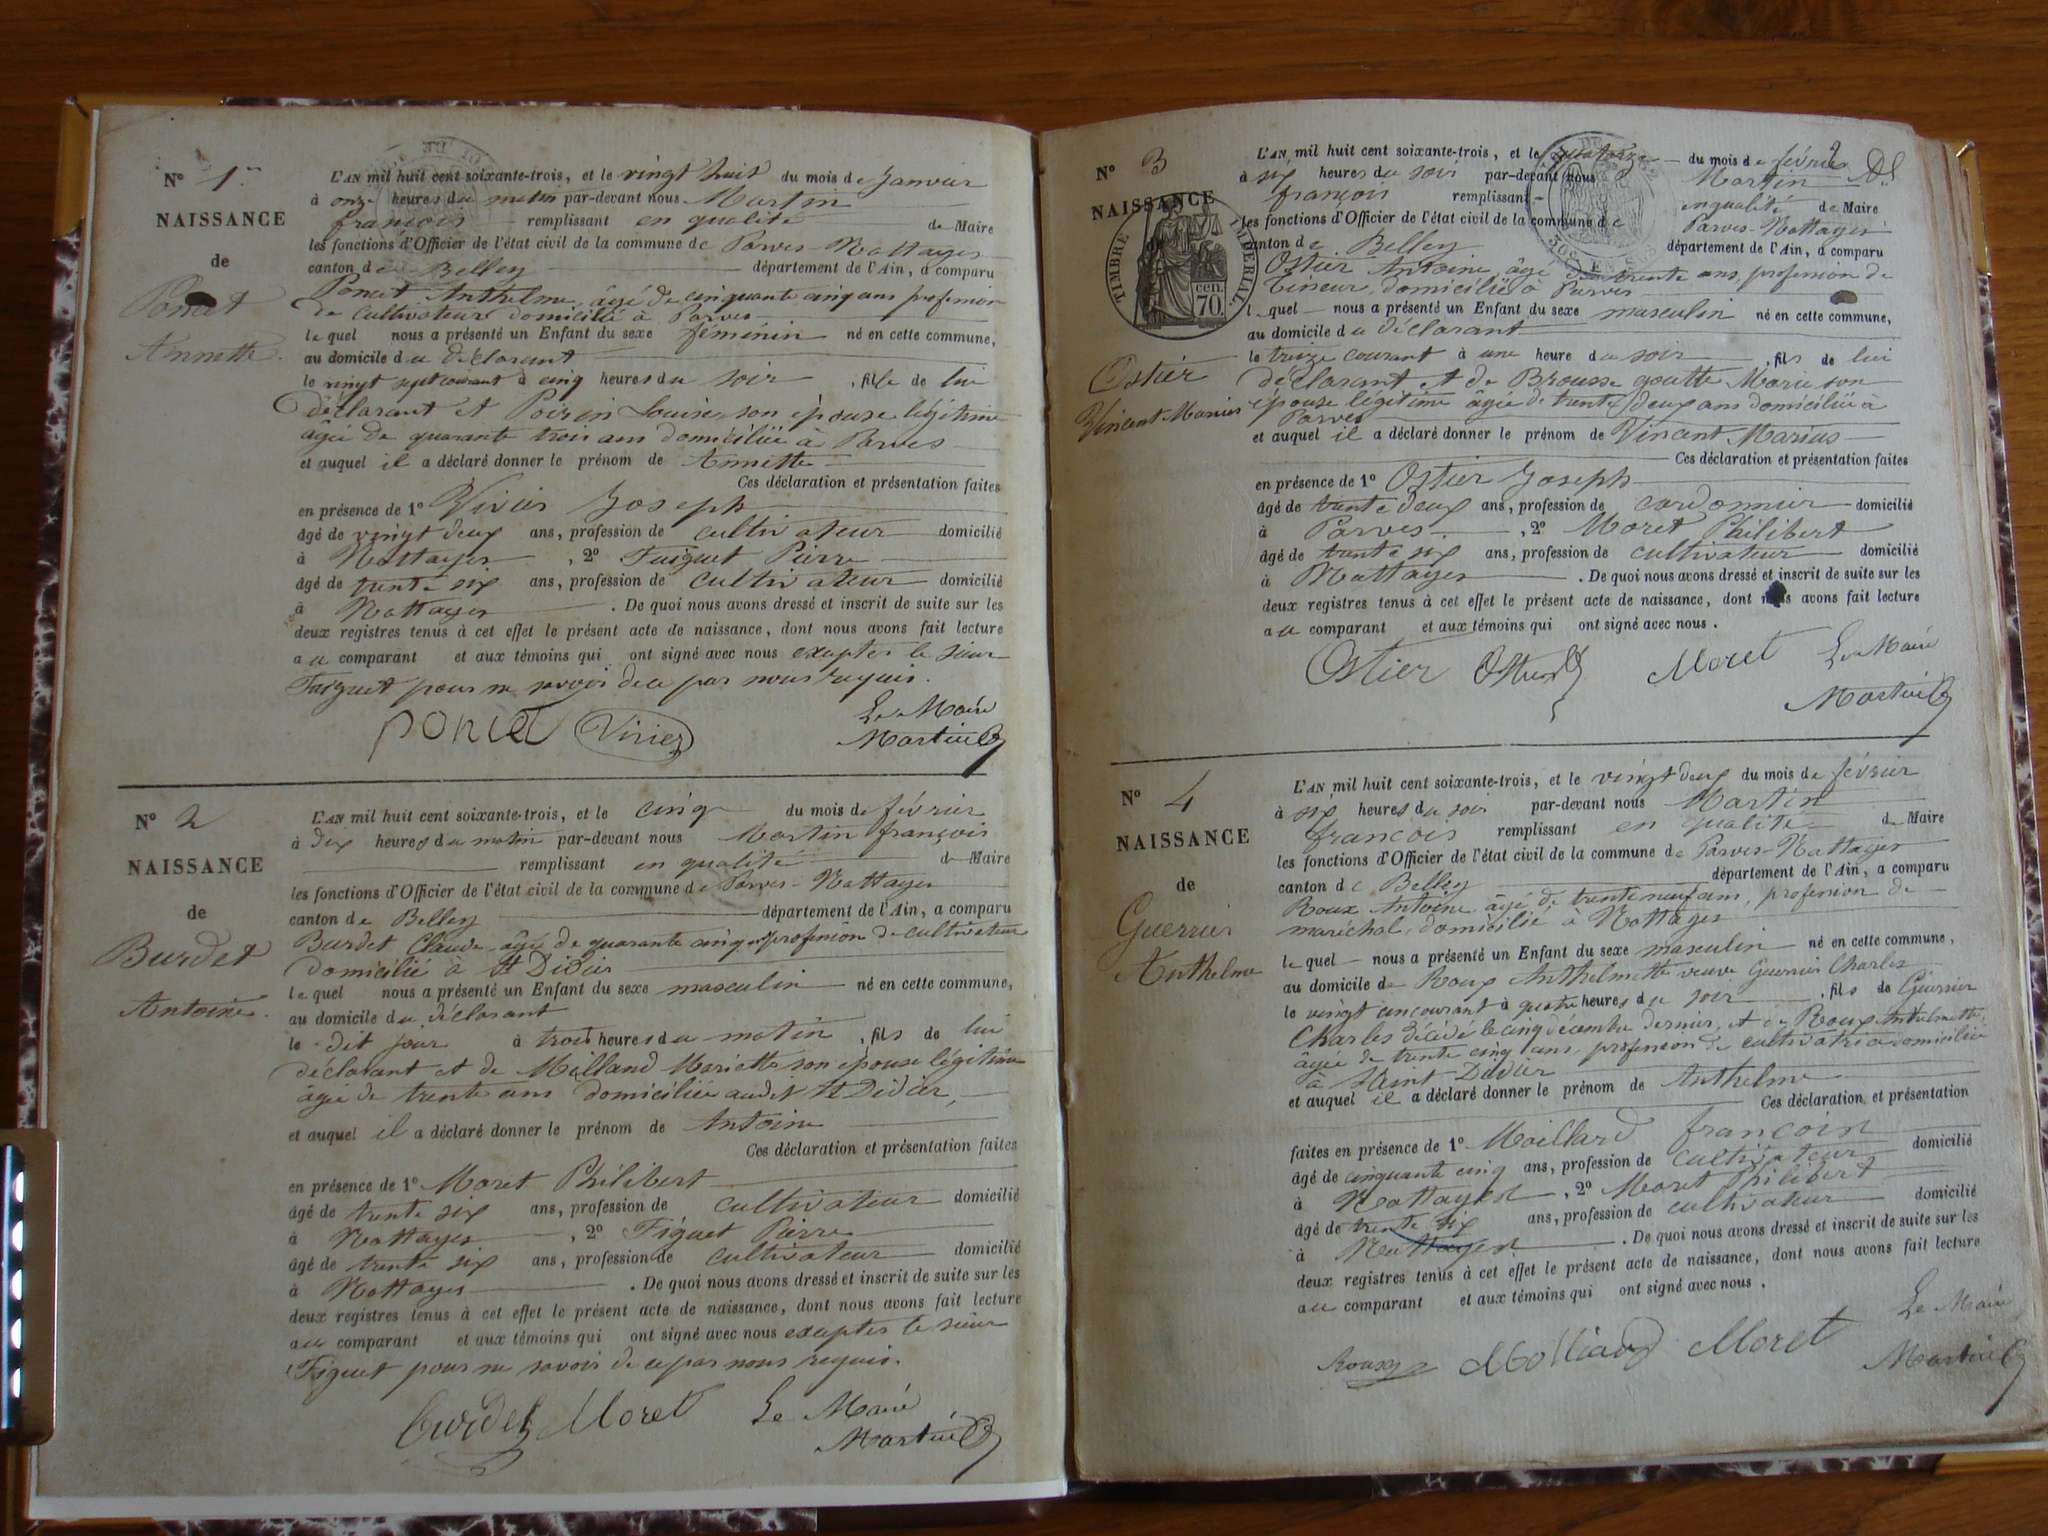 N° 1er
NAISSANCE
de
Poncet
Annette.
L'AN mil huit cent soixante-trois, et le vingt huit du mois de Janvier
à onze heures du matin par-devant nous Martin
françois remplissant en qualité de Maire
les fonctions d'Officier de l'état civil de la commune de Parves-Nattages
canton de Belley département de l'Ain, a comparu
Poncet Anthelme, âgé de cinquante cinq ans profession
de cultivateur domicilié à Parves
lequel nous a présenté un Enfant du sexe féminin né en cette commune,
au domicile du déclarant
le vingt sept courant à cinq heures du soir, fille de lui
déclarant et Poirin Louise, son épouse légitime
âgée de quarante trois ans domiciliée à Parves
et auquel il a déclaré donner le prénom de Annette
Ces déclaration et présentation faites
en présence de 1° Vivier Joseph
âgé de vingt deux ans, profession de cultivateur domicilié
à Nattages, 2° Faiguet Pierre
âgé de trente six ans, profession de cultivateur domicilié
à Nattages. De quoi nous avons dressé et inscrit de suite sur les
deux registres tenus à cet effet le présent acte de naissance, dont nous avons fait lecture
au comparant et aux témoins qui ont signé avec nous exeptes le sieur
Faiguet pour ne savoir de ce par nous requis.
Poncet Vivier Le Maire
Martin
N° 2
NAISSANCE
de
Burdet
Antoine.
L'AN mil huit cent soixante-trois, et le cinq du mois de février
à dix heures du matin par-devant nous Martin françois
remplissant en qualité de Maire
les fonctions d'Officier de l'état civil de la commune de Parves-Nattages
canton de Belley département de l'Ain, a comparu
Burdet Claude, âgé de quarante cinq profession de cultivateur
domicilié à St Didier
lequel nous a présenté un Enfant du sexe masculin né en cette commune,
au domicile du déclarant
le dit jour à trois heures du matin, fils de lui
déclarant et de Milland Mariette son épouse légitime
âgée de trente ans domiciliée audit St Didier,
et auquel il a déclaré donner le prénom de Antoine
Ces déclaration et présentation faites
en présence de 1° Moret Philibert
âgé de trente six ans, profession de cultivateur domicilié
à Nattages, 2° Figuet Pierre
âgé de trente six ans, profession de cultivateur domicilié
à Nattages. De quoi nous avons dressé et inscrit de suite sur les
deux registres tenus à cet effet le présent acte de naissance, dont nous avons fait lecture
au comparant et aux témoins qui ont signé avec nous exeptes le sieur
Figuet pour ne savoir de ce par nous requis.
Burdet Moret Le Maire
Martin
N° 3
NAISSANCE
TIMBRE IMPÉRIAL
70 cen.
Ostier
Vincent Marius
2
L'AN mil huit cent soixante-trois, et le quatorze du mois de février
à six heures du soir par-devant nous Martin
françois remplissant en qualité de Maire
les fonctions d'Officier de l'état civil de la commune de Parves-Nattages
canton de Belley département de l'Ain, a comparu
Ostier Antoine, âgé de trente ans, profession de
tineur, domicilié à Parves
lequel nous a présenté un Enfant du sexe masculin né en cette commune,
au domicile du déclarant
le treize courant à une heure du soir, fils de lui
déclarant et de Brousse goutte Marie son
épouse légitime âgée de trente deux ans domiciliée à
Parves
et auquel il a déclaré donner le prénom de Vincent Marius
Ces déclaration et présentation faites
en présence de 1° Ostier Joseph
âgé de trente deux ans, profession de cordonnier domicilié
à Parves, 2° Moret Philibert
âgé de trente six ans, profession de cultivateur domicilié
à Nattages. De quoi nous avons dressé et inscrit de suite sur les
deux registres tenus à cet effet le présent acte de naissance, dont nous avons fait lecture
au comparant et aux témoins qui ont signé avec nous.
Ostier Ostier Moret Le Maire
Martin
N° 4
NAISSANCE
de
Guerrier
Anthelme
L'AN mil huit cent soixante-trois, et le vingt deux du mois de février
à six heures du soir par-devant nous Martin
francois remplissant en qualité de Maire
les fonctions d'Officier de l'état civil de la commune de Parves-Nattages
canton de Belley département de l'Ain, a comparu
Roux Antoine âgé de trente neuf ans, profession de
maréchal, domicilié à Nattages
lequel nous a présenté un Enfant du sexe masculin né en cette commune,
au domicile de Roux Anthelmette veuve Guerrier Charles
le vingt un courant à quatre heures du soir, fils de Guerrier
Charles décédé le cinq décembre dernier, et de Roux Anthelmette,
âgée de trente cinq ans, profession de cultivatrice domiciliée
à Saint Didier
et auquel il a déclaré donner le prénom de Anthelme
Ces déclaration et présentation
faites en présence de 1° Moillard francois
âgé de cinquante cinq ans, profession de cultivateur domicilié
à Nattages, 2° Moret Philibert
âgé de trente six ans, profession de cultivateur domicilié
à Nattages. De quoi nous avons dressé et inscrit de suite sur les
deux registres tenus à cet effet le présent acte de naissance, dont nous avons fait lecture
au comparant et aux témoins qui ont signé avec nous.
Roux Molliard Moret Le Maire
Martin